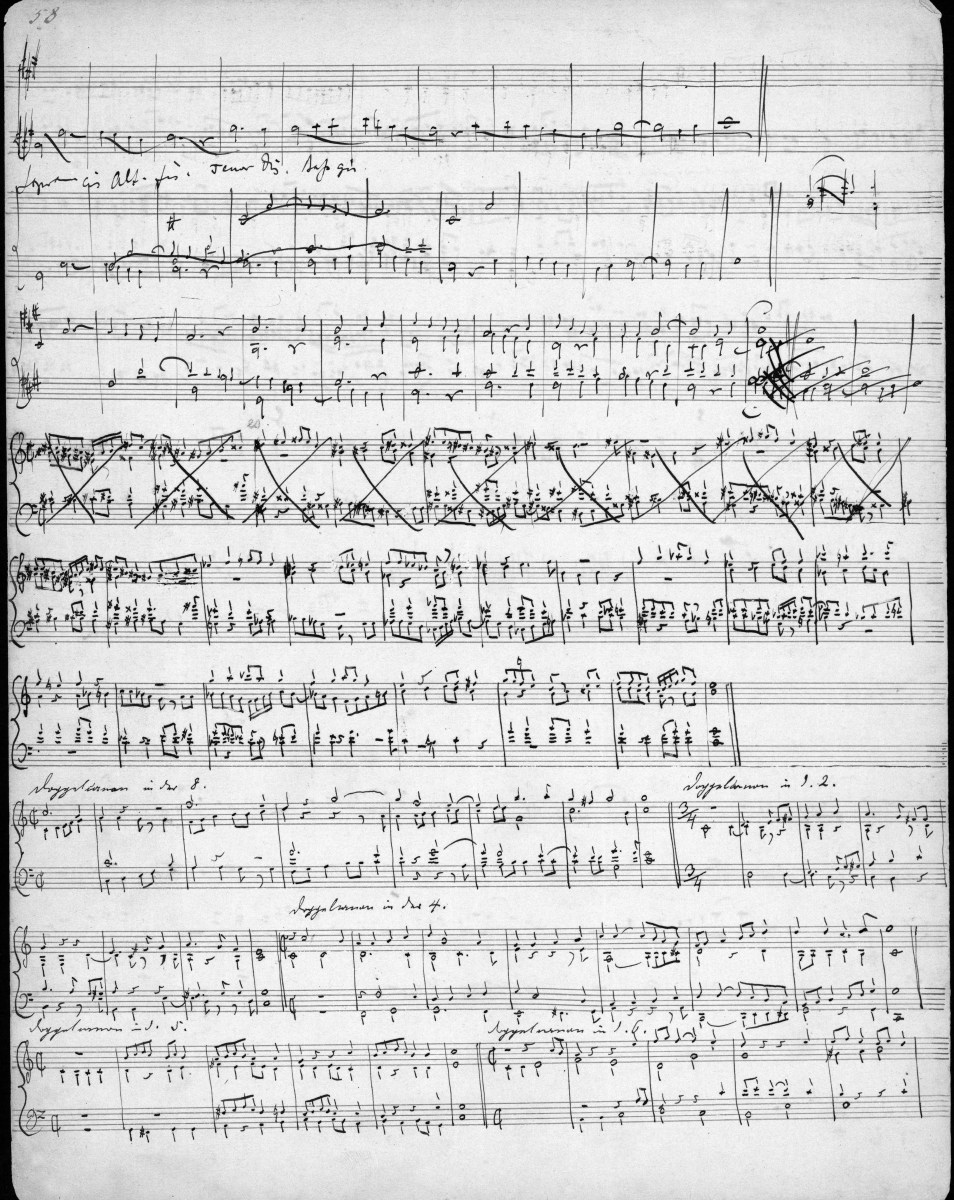 58
Sopran cis Alt. fis. Tenor dis. Baß gis.
Doppelcanon in der 8. Doppelcanon in d. 2.
Doppelcanon in der 4.
Doppelcanon in d. 5. Doppelcanon in d. 6.